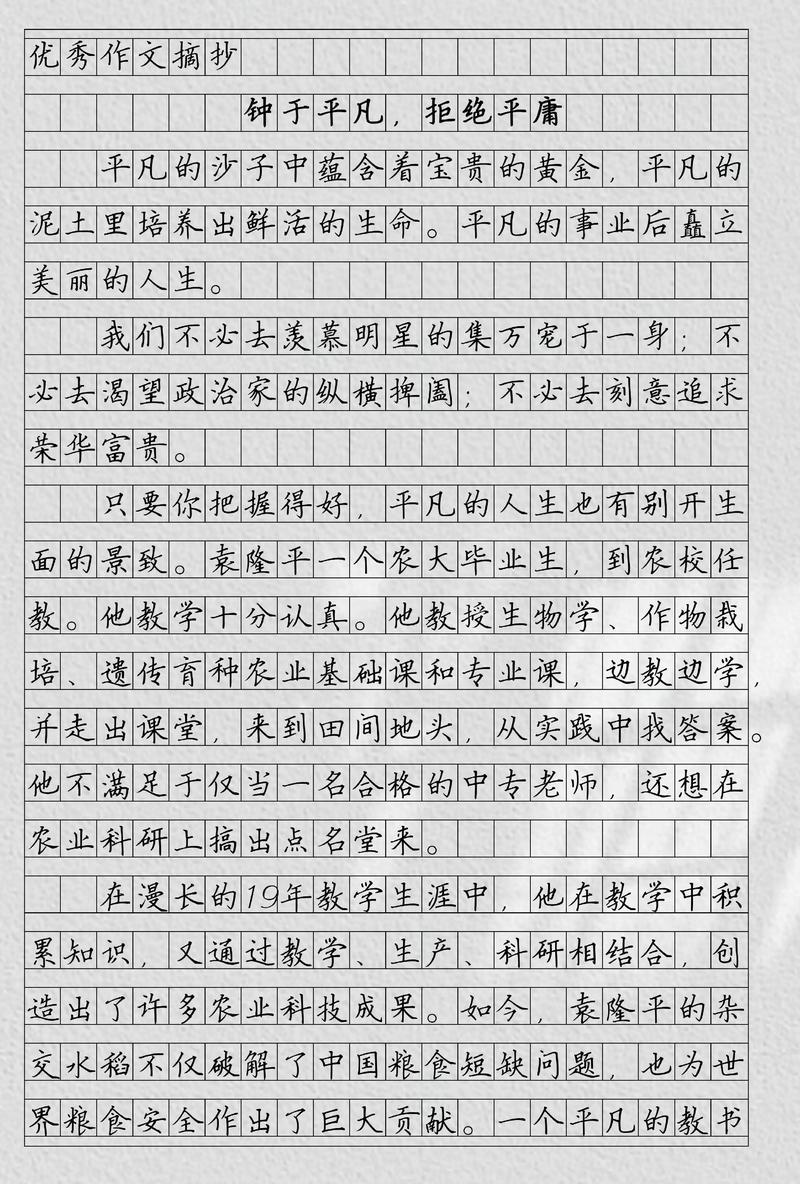 优秀作文摘抄
钟于平凡，拒绝平庸
平凡的沙子中蕴含着宝贵的黄金，平凡的
泥土里培养出鲜活的生命。平凡的事业后矗立
美丽的人生。
我们不必去羡慕明星的集万宠于一身；不
必去渴望政治家的纵横捭阖；不必去刻意追求
荣华富贵。
只要你把握得好，平凡的人生也有别开生
面的景致。袁隆平一个农大毕业生，到农校任
教。他教学十分认真。他教授生物学、作物栽
培、遗传育种农业基础课和专业课，边教边学，
并走出课堂，来到田间地头，从实践中找答案。
他不满足于仅当一名合格的中专老师，还想在
农业科研上搞出点名堂来。
在漫长的19年教学生涯中，他在教学中积
累知识，又通过教学、生产、科研相结合，创
造出了许多农业科技成果。如今，袁隆平的杂
交水稻不仅破解了中国粮食短缺问题，也为世
界粮食安全作出了巨大贡献。一个平凡的教书